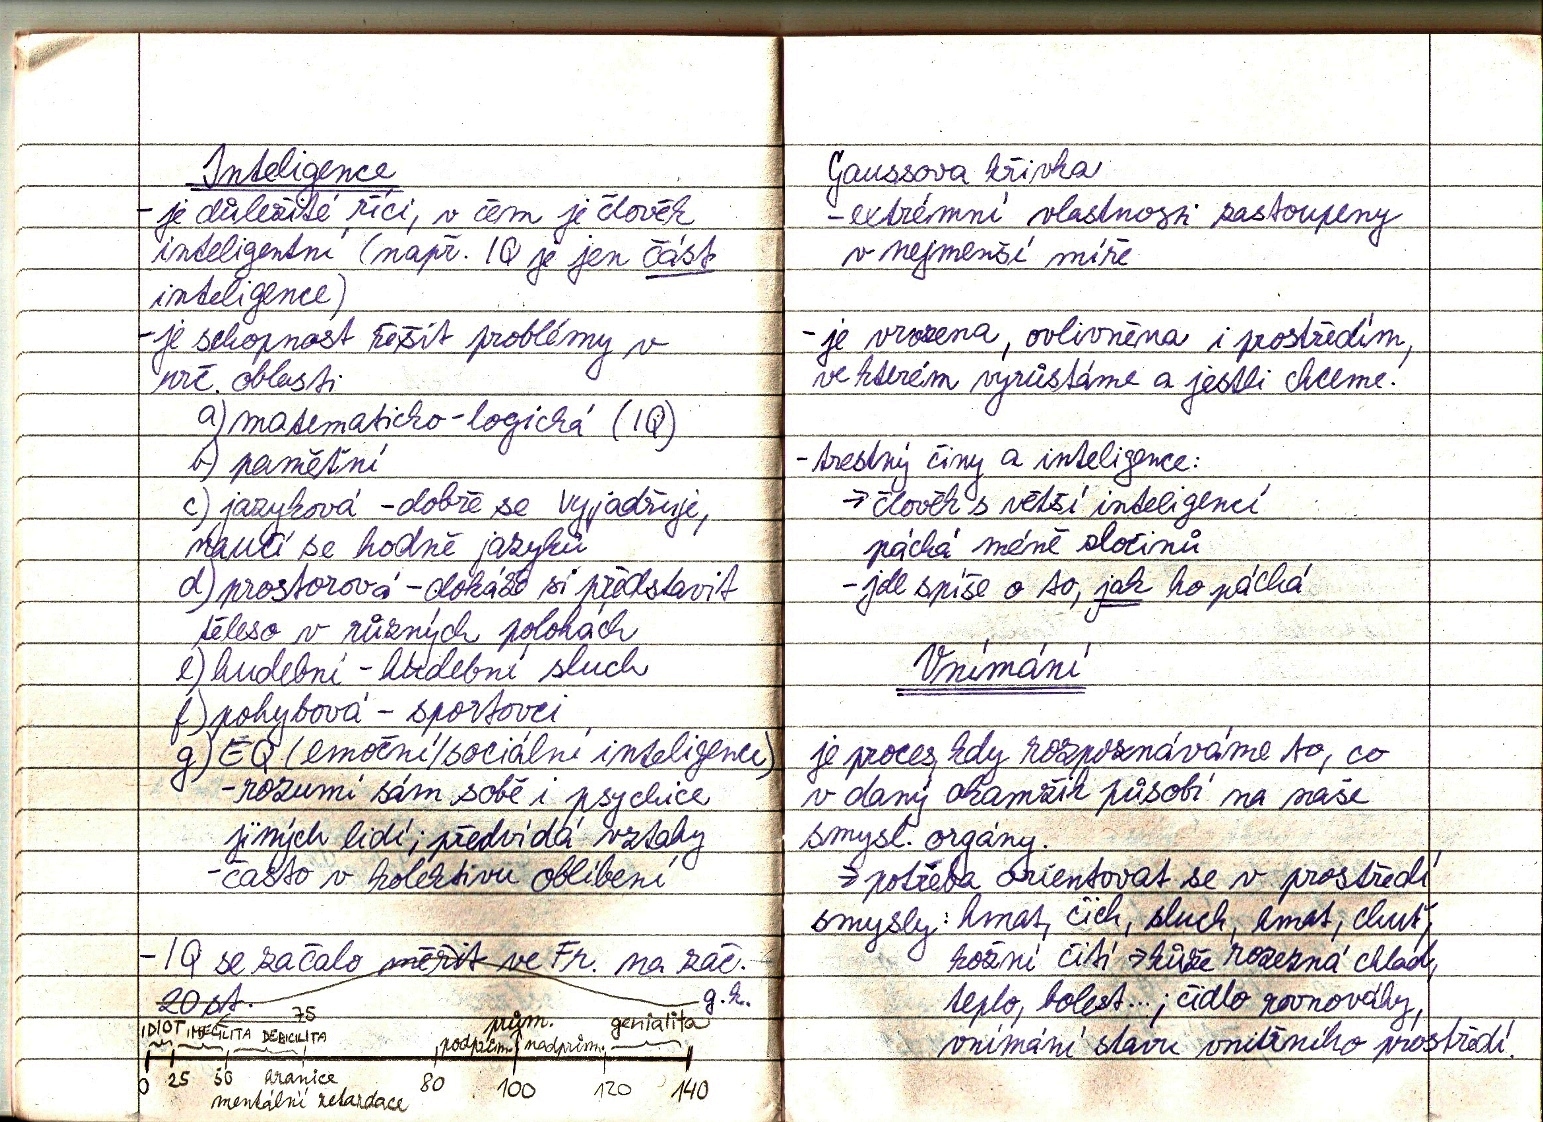 Inteligence
- je důležité říci, v čem je člověk
inteligentní (např. IQ je jen část
inteligence)
- je schopnost řešit problémy v
urč. oblasti
a) matematicko-logická (IQ)
b) pamětní
c) jazyková - dobře se vyjadřuje,
naučí se hodně jazyků
d) prostorová - dokáže si představit
těleso v různých polohách
e) hudební - hudební sluch
f) pohybová - sportovci
g) EQ (emoční/sociální inteligence)
- rozumí sám sobě i psychice
jiných lidí; předvídá vztahy
- často v kolektivu oblíbení
- IQ se začalo měřit ve Fr. na zač.
20 st.
g.k.
75
IDIOT IMECILITA DEBICILITA
prům.
podprům. nadprům.
genialita
0 25 50 80 100 120 140
hranice
mentální retardace
Gaussova křivka
- extrémní vlastnosti zastoupeny
v nejmenší míře
- je vrozena, ovlivněna i prostředím,
ve kterém vyrůstáme a jestli chceme.
- trestný činy a inteligence:
→ člověk s větší inteligencí
páchá méně zločinů
- jde spíše o to, jak ho páchá
Vnímání
je proces, kdy rozpoznáváme to, co
v daný okamžik působí na naše
smysl. orgány.
→ potřeba orientovat se v prostředí
smysly: hmat, čich, sluch, hmat, chuť,
kožní čití → kůže rozezná chlad,
teplo, bolest...; čidlo rovnováhy,
vnímání stavu vnitřního prostředí.